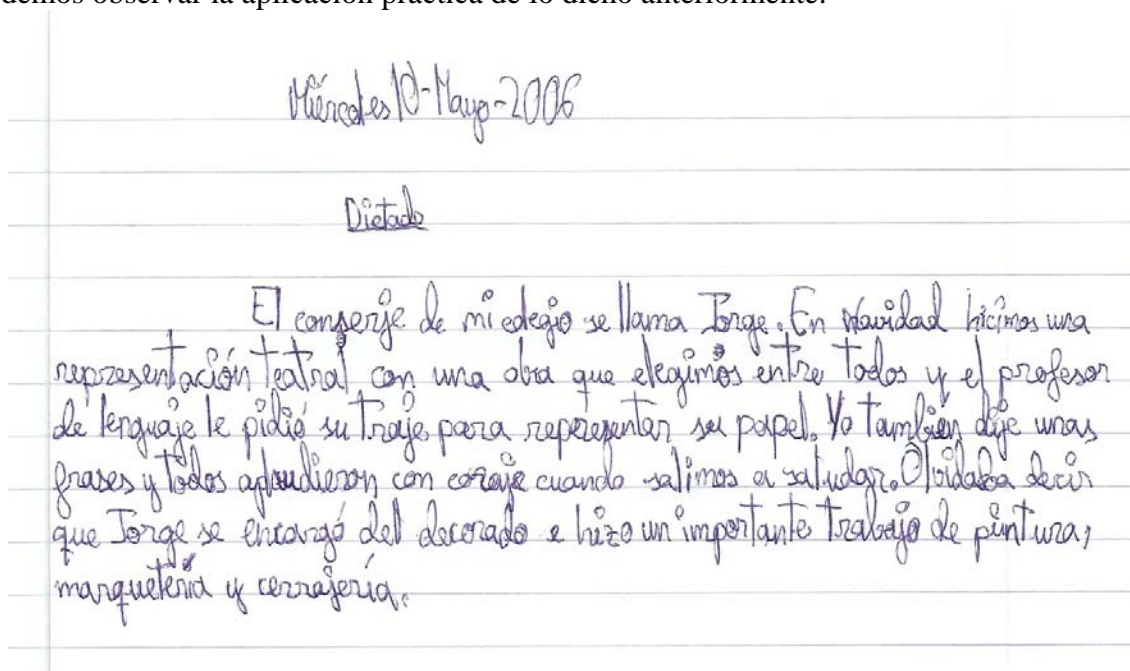 demos observar la aplicación práctica de lo dicho anteriormente:
Miércoles 10-Mayo-2006
Dictado
El conserje de mi colegio se llama Jorge. En Navidad hicimos una
representación teatral con una obra que elegimos entre todos y el profesor
de lenguaje le pidió su traje para representar su papel. Yo también dije unas
frases y todos aplaudieron con coraje cuando salimos a saludar. Olvidaba decir
que Jorge se encargó del decorado e hizo un importante trabajo de pintura,
marquetería y cerrajería.